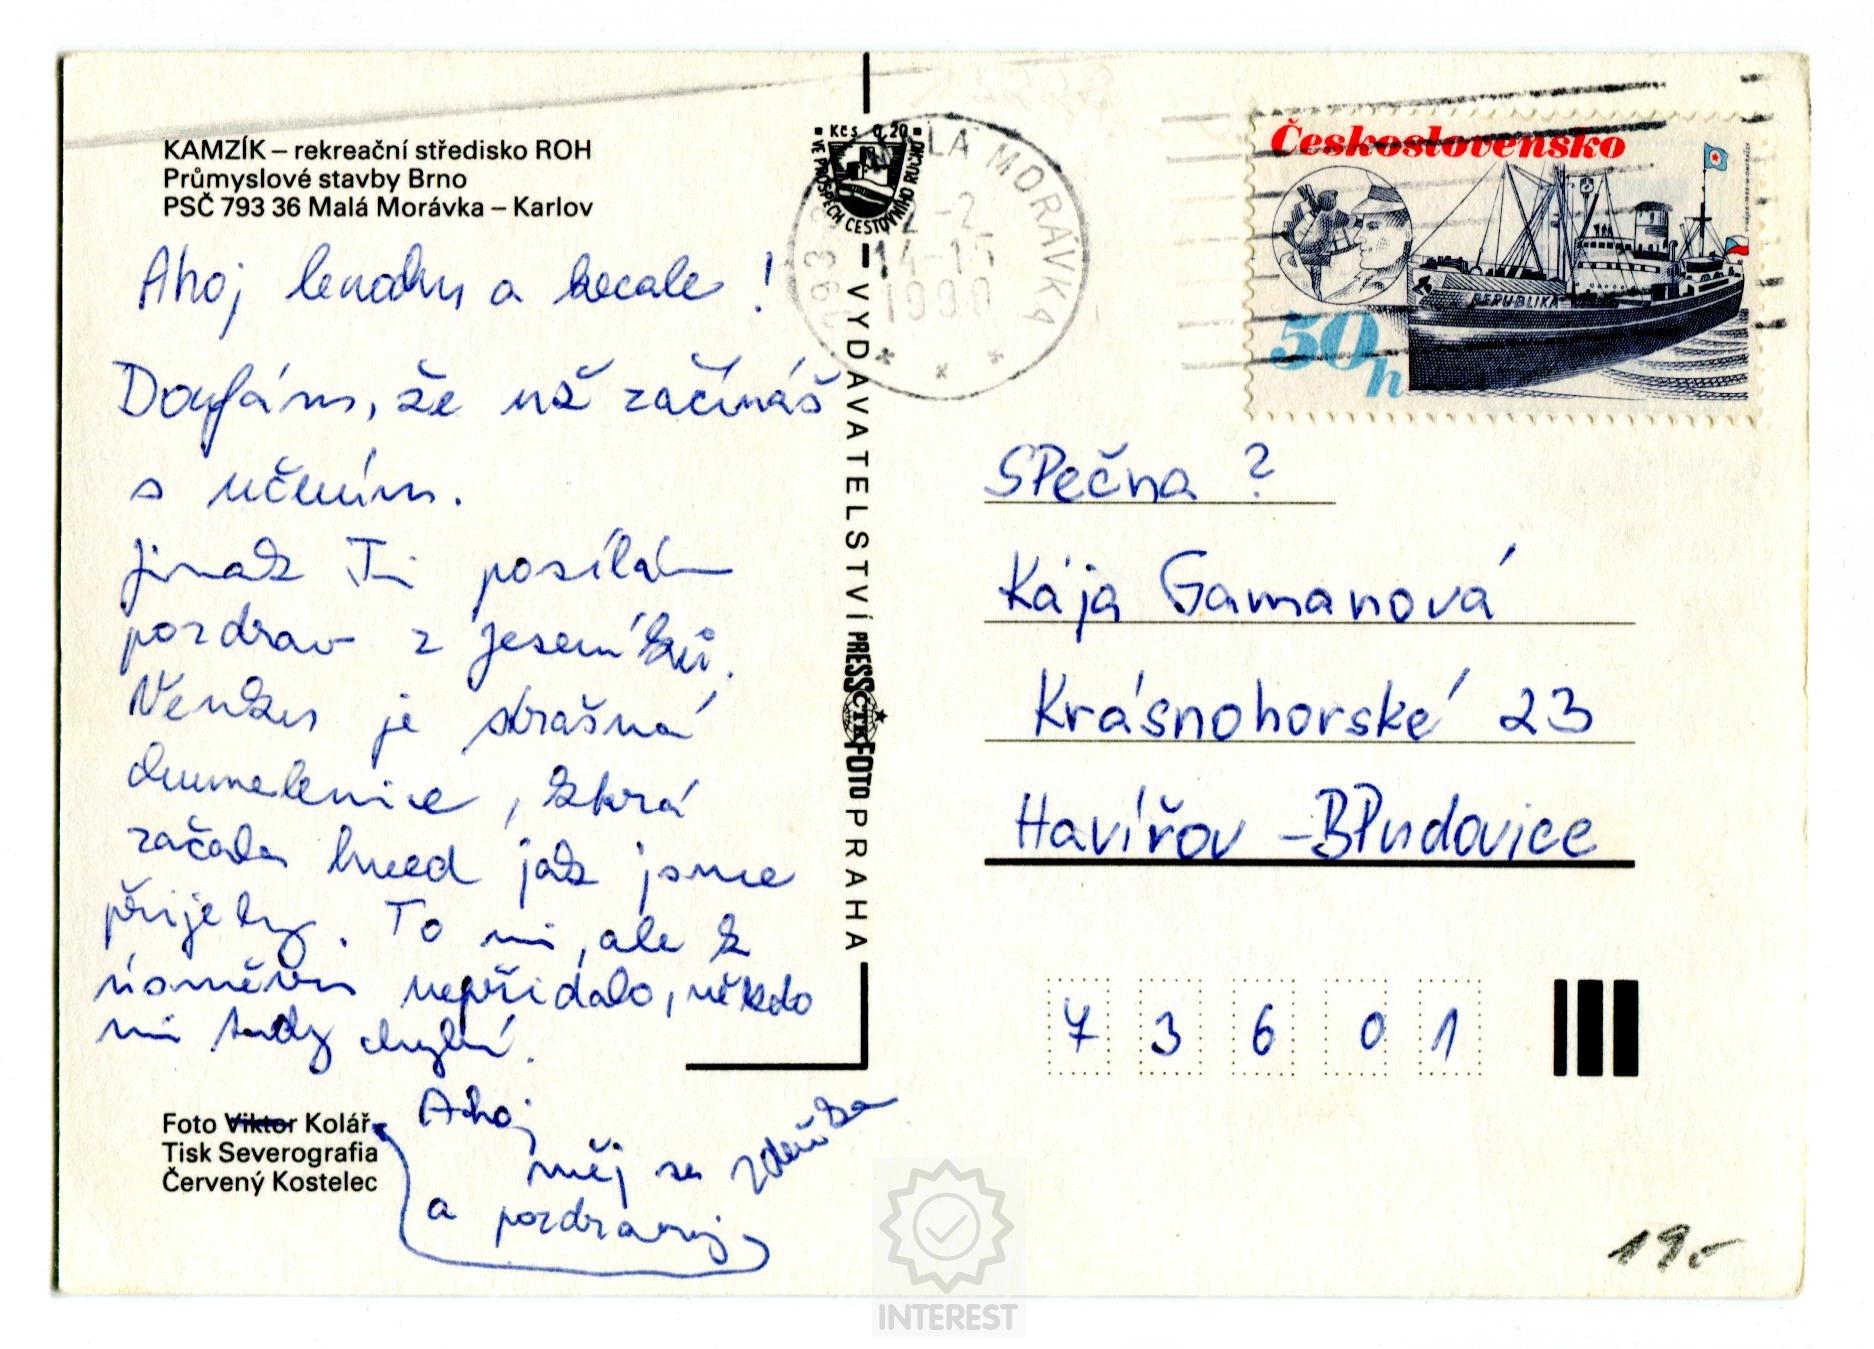 KAMZÍK – rekreační středisko ROH
Průmyslové stavby Brno
PSČ 793 36 Malá Morávka – Karlov
Ahoj lenochu a !
Doufám, že už začínáš
s učením.
Jinak Ti posílám
pozdrav z Jeseníků.
Venku je strašná
chumelenice, která
začala hned jak jsme
přijely. To mi, ale k
úsměvu nepřidalo, někdo
mi tady chybí.
Ahoj
měj se Zdeňka
a pozdravuj
Foto Viktor Kolář
Tisk Severografia
Červený Kostelec
Kčs 0,20
VE PROSPĚCH CESTOVNÍHO RUCHU
VYDAVATELSTVÍ PRESSFOTO PRAHA
ČTK
MALÁ MORÁVKA
793 36
14-15
1990
Československo
REPUBLIKA
50h
SPečna ?
Kája Gamanová
Krásnohorské 23
Havířov – BPudovice
7 3 6 0 1
19,-
INTEREST